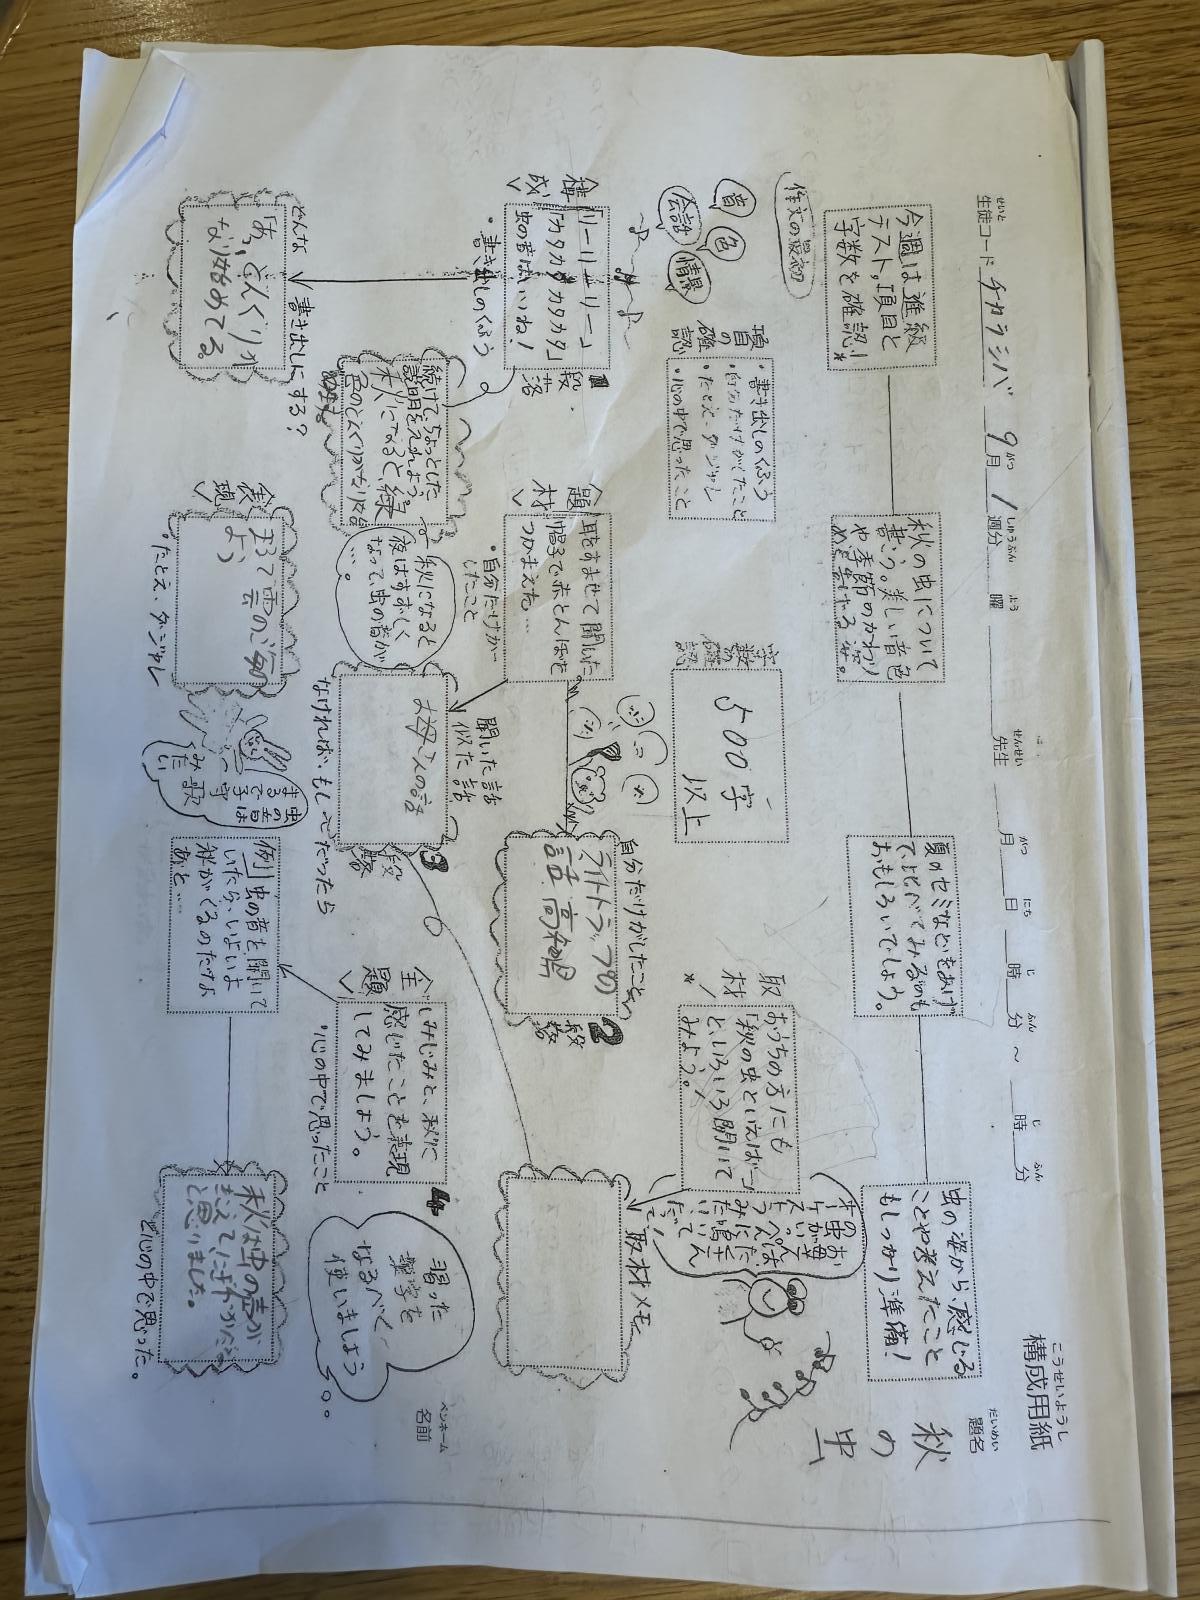 こうせいようし
構成用紙
せいと
生徒コード チカラシバ 9月 1週分 曜 先生 月 日 時 分 ~ 時 分
だいめい
題名
秋の虫
今週は進級
テスト,項目と
字数を確認!*
秋の虫について
書こう。美しい音色
や季節のかわり
夏のセミなどをあげ
て、比べてみるのも
おもしろいでしょう。
虫の姿から、感じる
ことや考えたこと
もしっかり準備!
作文の最初
音
色
会話
情景
項目の確認
・書き出しのくふう
・自分だけがしたこと
・たとえ・ダジャレ
・心の中で思ったこと
字数の確認
500字
以上
取材
おうちの方にも
「秋の虫といえば…」
といろいろ聞いて
みよう。
取材メモ
構成
「リーリーリー」
「カタカタカタカタ」
虫の音はいいね!
・書き出しのくふう
1段落
題材
耳をすませて聞いた。
帽子で赤とんぼを
つかまえた…
・自分だけが
したこと
自分だけがしたこと
ライトトラップの
話 高知県
2段落
続けてちょっとした
説明をいれよう。
秋になると、緑
色のどんぐりがなり始
秋になると
夜はすずしく
なって虫の音が
…。
聞いた話
似た話
お母さんの話
なければ、もし〜だったら
3段落
主題
しみじみと、秋に
感じたことを表現
してみましょう。
・心の中で思ったこと
4
習った
漢字を
なるべく
使いましょう
ペンネーム
名前
どんな書き出しにする?
「あ、どんぐりが
なり始めてる。
表現
まるで雲のじゅう
よう
・たとえ・ダジャレ
虫の音は
まるで子守
みたい
例 虫の音を聞いて
いたら、いよいよ
秋がくるのだなよ
あと…
秋は虫の声が
と思いました。
と心の中で思った。